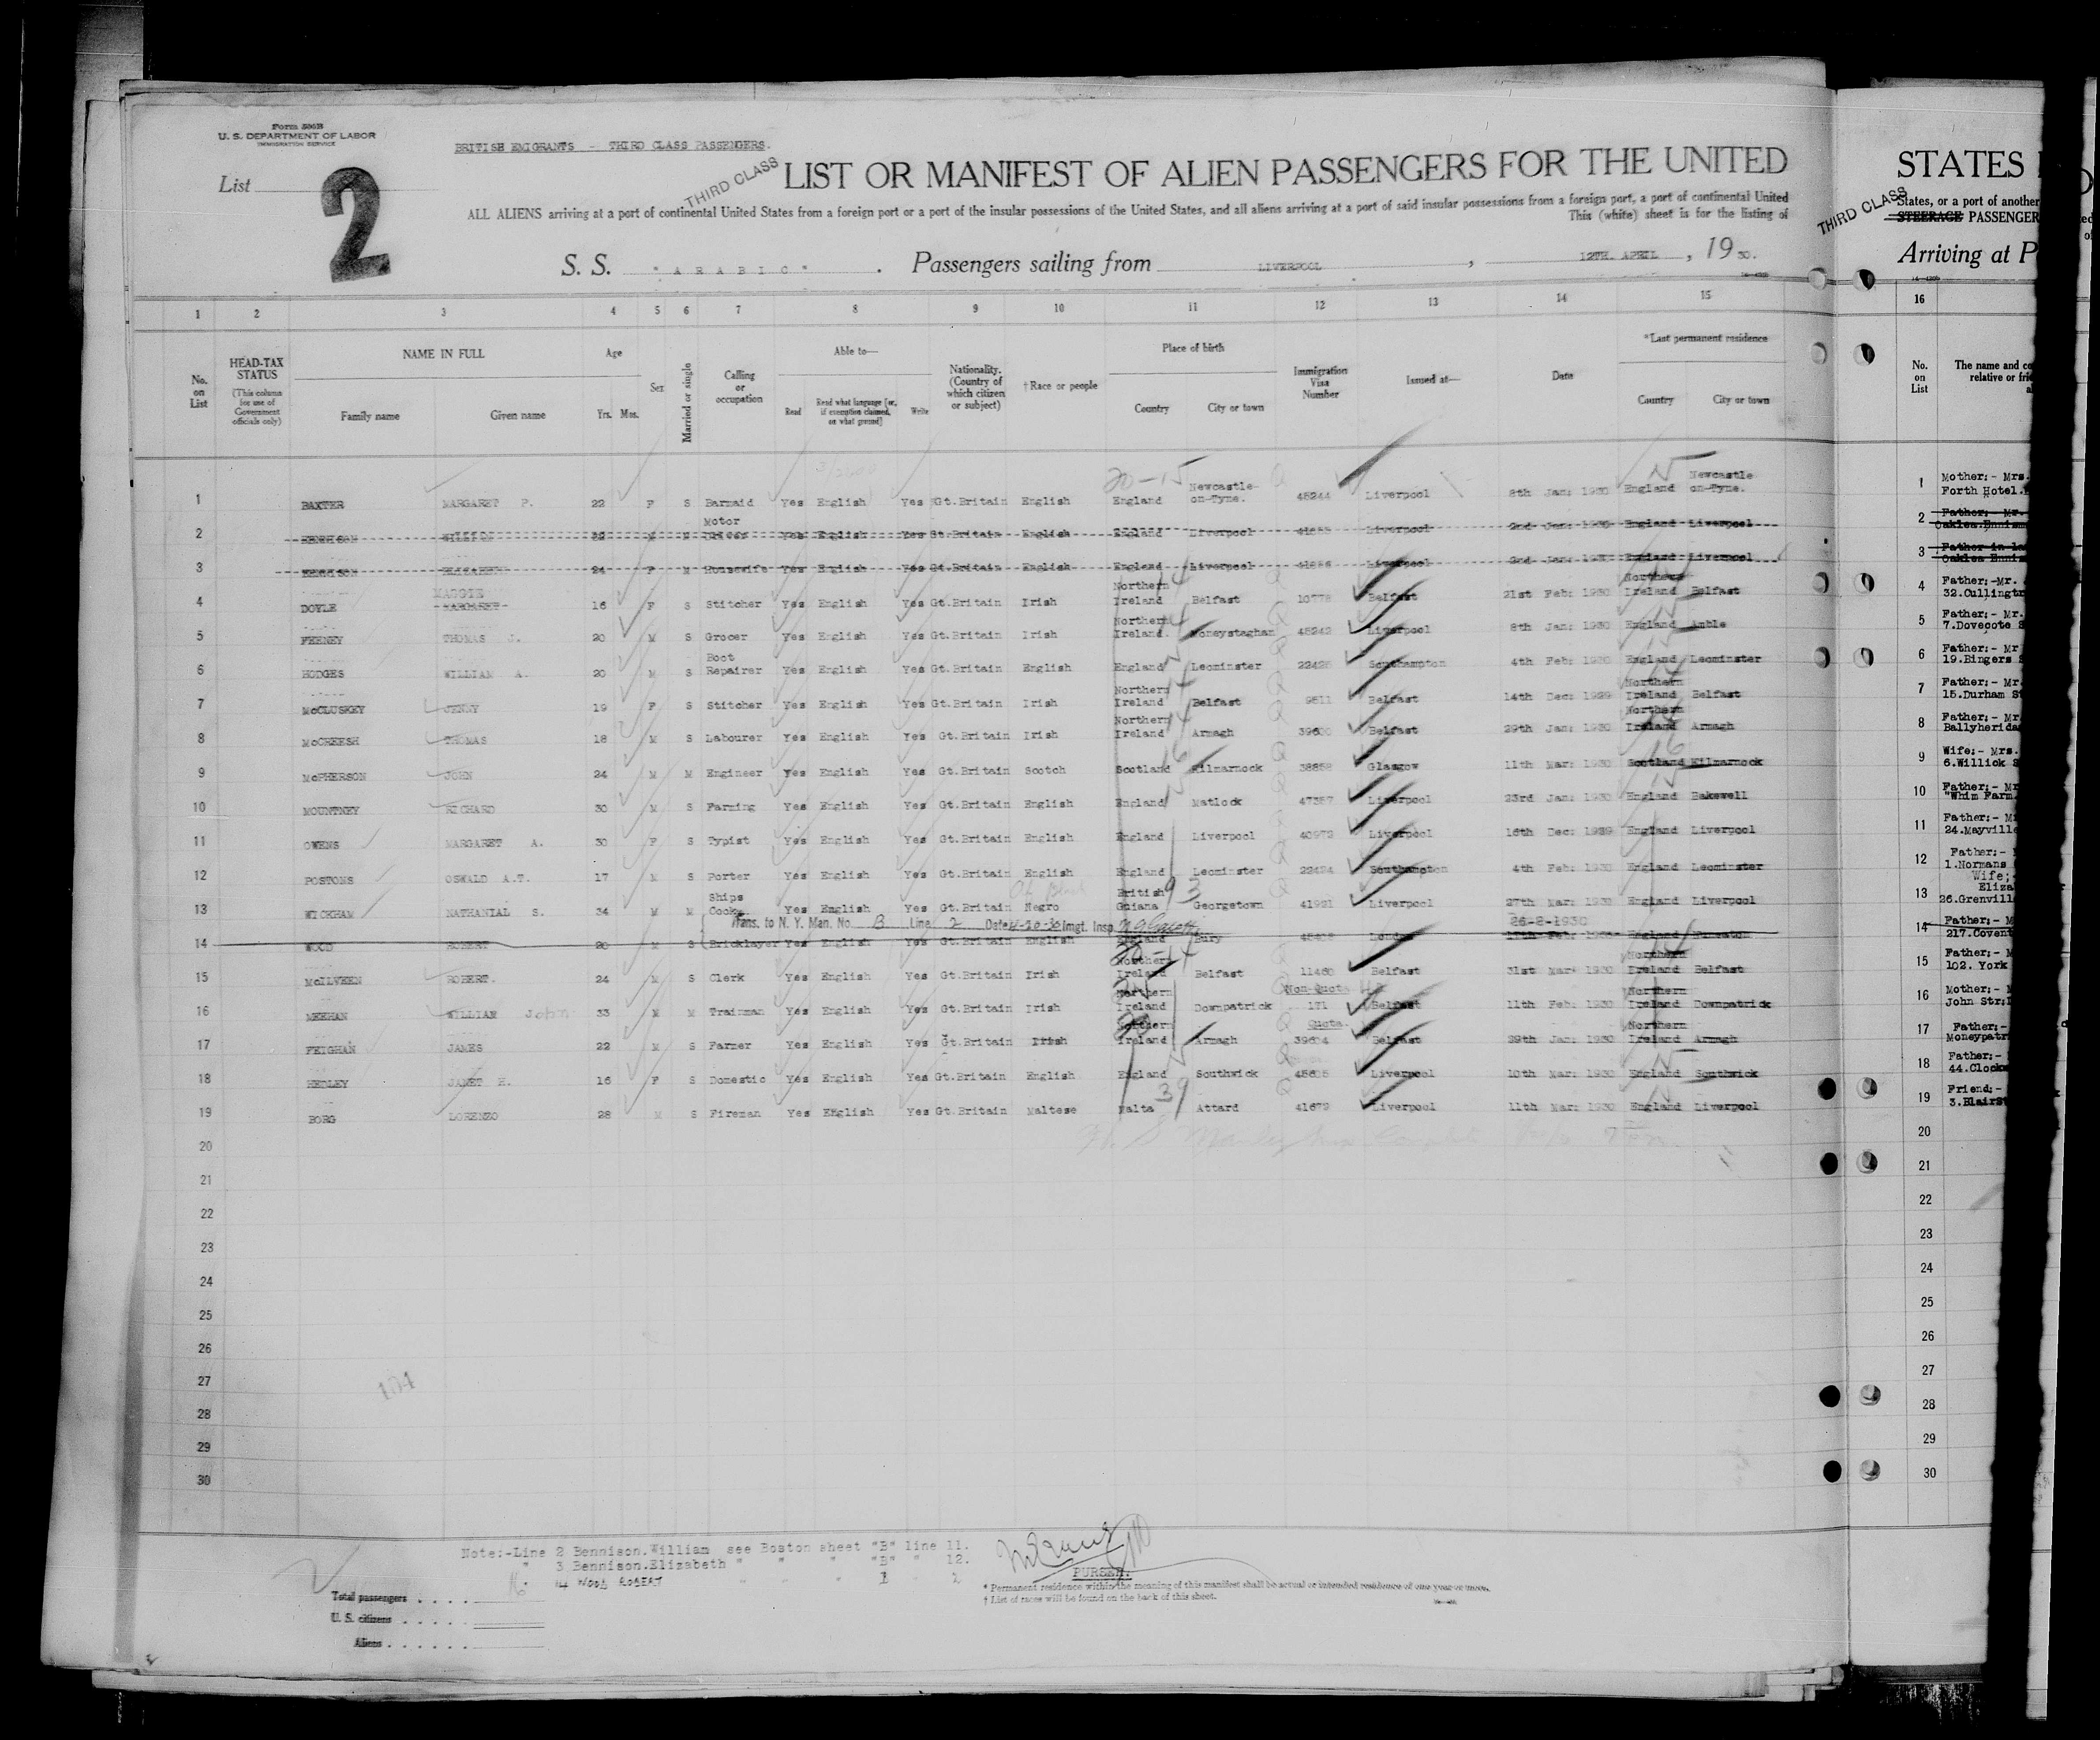 Form 500B
U. S. DEPARTMENT OF LABOR
IMMIGRATION SERVICE
BRITISH EMIGRANTS - THIRD CLASS PASSENGERS.
List
2
THIRD CLASS
LIST OR MANIFEST OF ALIEN PASSENGERS FOR THE UNITED
ALL ALIENS arriving at a port of continental United States from a foreign port or a port of the insular possessions of the United States, and all aliens arriving at a port of said insular possessions from a foreign port, a port of continental United
This (white) sheet is for the listing of
S. S. "ARABIC". Passengers sailing from LIVERPOOL, 12TH. APRIL, 1930.
1 2 3 4 5 6 7 8 9 10 11 12 13 14 15
No. on List
HEAD-TAX STATUS (This column for use of Government officials only)
NAME IN FULL
Family name Given name
Age
Yrs. Mos.
Sex
Married or single
Calling or occupation
Able to—
Read
Read what language [or, if exemption claimed, on what ground]
Write
Nationality. (Country of which citizen or subject)
†Race or people
Place of birth
Country City or town
Immigration Visa Number
Issued at—
Date
*Last permanent residence
Country City or town
20-15
1 BAXTER MARGARET P. 22 F S Barmaid Yes English Yes Gt.Britain English England Newcastle-on-Tyne. 45244 Liverpool 8th Jan: 1930 England Newcastle on-Tyne.
2 William 32 M M Motor Yes English Yes Gt.Britain English England Liverpool Liverpool 2nd Jan: 1930 England Liverpool
3 Elizabeth 24 F M Housewife Yes English Yes Gt.Britain English England Liverpool Liverpool 2nd Jan: England Liverpool
4 DOYLE MAGGIE MARGARET 16 F S Stitcher Yes English Yes Gt.Britain Irish Northern Ireland Belfast 10778 Belfast 21st Feb: 1930 Northern Ireland Belfast
5 FEENEY THOMAS J. 20 M S Grocer Yes English Yes Gt.Britain Irish Northern Ireland. Moneystaghan 45242 Liverpool 8th Jan: 1930 England Amble
6 HODGES WILLIAM A. 20 M S Boot Repairer Yes English Yes Gt.Britain English England Leominster Southampton 4th Feb: 1930 England Leominster
7 McCLUSKEY JENNY 19 F S Stitcher Yes English Yes Gt.Britain Irish Northern Ireland Belfast 9511 Belfast 14th Dec: 1929 Northern Ireland Belfast
8 McCREESH THOMAS 18 M S Labourer Yes English Yes Gt.Britain Irish Northern Ireland Armagh Belfast 29th Jan: 1930 Northern Ireland Armagh
9 McPHERSON JOHN 24 M M Engineer Yes English Yes Gt.Britain Scotch Scotland Kilmarnock Glasgow 11th Mar: 1930 Scotland Kilmarnock
10 MOUNTNEY RICHARD 30 M S Farming Yes English Yes Gt.Britain English England Matlock 47357 Liverpool 23rd Jan: 1930 England Bakewell
11 OWENS MARGARET A. 30 F S Typist Yes English Yes Gt.Britain English England Liverpool 40973 Liverpool 16th Dec: 1929 England Liverpool
12 POSTONS OSWALD A.T. 17 M S Porter Yes English Yes Gt.Britain English England Leominster 22424 Southampton 4th Feb: 1930 England Leominster
13 WICKHAM NATHANIAL S. 34 M M Ships Cook Yes English Yes Gt.Britain Negro British Guiana Georgetown 41921 Liverpool 27th Mar: 1930 England Liverpool
Trans. to N. Y. Man. No. B Line 2 Date 4-20-30 Imgt. Insp.
26-2-1930
14 WOOD ROBERT 20 M S Bricklayer Yes English Yes Gt.Britain English England Bury London England
15 McILVEEN ROBERT. 24 M S Clerk Yes English Yes Gt.Britain Irish Northern Ireland Belfast 11460 Belfast 31st Mar: 1930 Northern Ireland Belfast
16 MEEHAN WILLIAM John 33 M M Trainman Yes English Yes Gt.Britain Irish Northern Ireland Downpatrick Non-Quota 171 Belfast 11th Feb: 1930 Northern Ireland Downpatrick
17 FEIGHAN JAMES 22 M S Farmer Yes English Yes Gt.Britain Irish Northern Ireland Armagh Quota. 39604 Belfast 29th Jan: 1930 Northern Ireland Armagh
18 HEDLEY JANET H. 16 F S Domestic Yes English Yes Gt.Britain English England Southwick 45605 Liverpool 10th Mar: 1930 England Southwick
19 BORG LORENZO 28 M S Fireman Yes English Yes Gt.Britain Maltese Malta Attard 41679 Liverpool 11th Mar: 1930 England Liverpool
20
21
22
23
24
25
26
27
28
29
30
104
Note:-Line 2 Bennison.William see Boston sheet "B" line 11.
" 3 Bennison.Elizabeth " " " "B" " 12.
14 WOOD ROBERT " " " 1 " 2
PURSER.
Total passengers
U. S. citizens
Aliens
* Permanent residence within the meaning of this manifest shall be actual or intended residence of one year or more.
† List of races will be found on the back of this sheet.
STATES
THIRD CLASS
States, or a port of another
STEERAGE PASSENGER
Arriving at P
16
No. on List
The name and co
relative or frie
1 Mother:- Mrs.
Forth Hotel.
2 Father:- Mr.
3 Father-in-la
4 Father:-Mr.
32.Cullingtr
5 Father:- Mr.
7.Dovecote S
6 Father:- Mr
19.Bingers
7 Father:- Mr.
15.Durham S
8 Father:- Mr.
Ballyherida
9 Wife:- Mrs.
6.Willick S
10 Father:- Mr
"Whim Farm.
11 Father:- M
24.Mayville
12 Father:-
1.Normans
13 Wife;
Eliza
26.Grenvill
14 Father:- M
217.Covent
15 Father:- M
102. York
16 Mother:- M
John Str:
17 Father:-
Moneypatr
18 Father:-
44.Clock
19 Friend:-
3.BlairSt
20
21
22
23
24
25
26
27
28
29
30